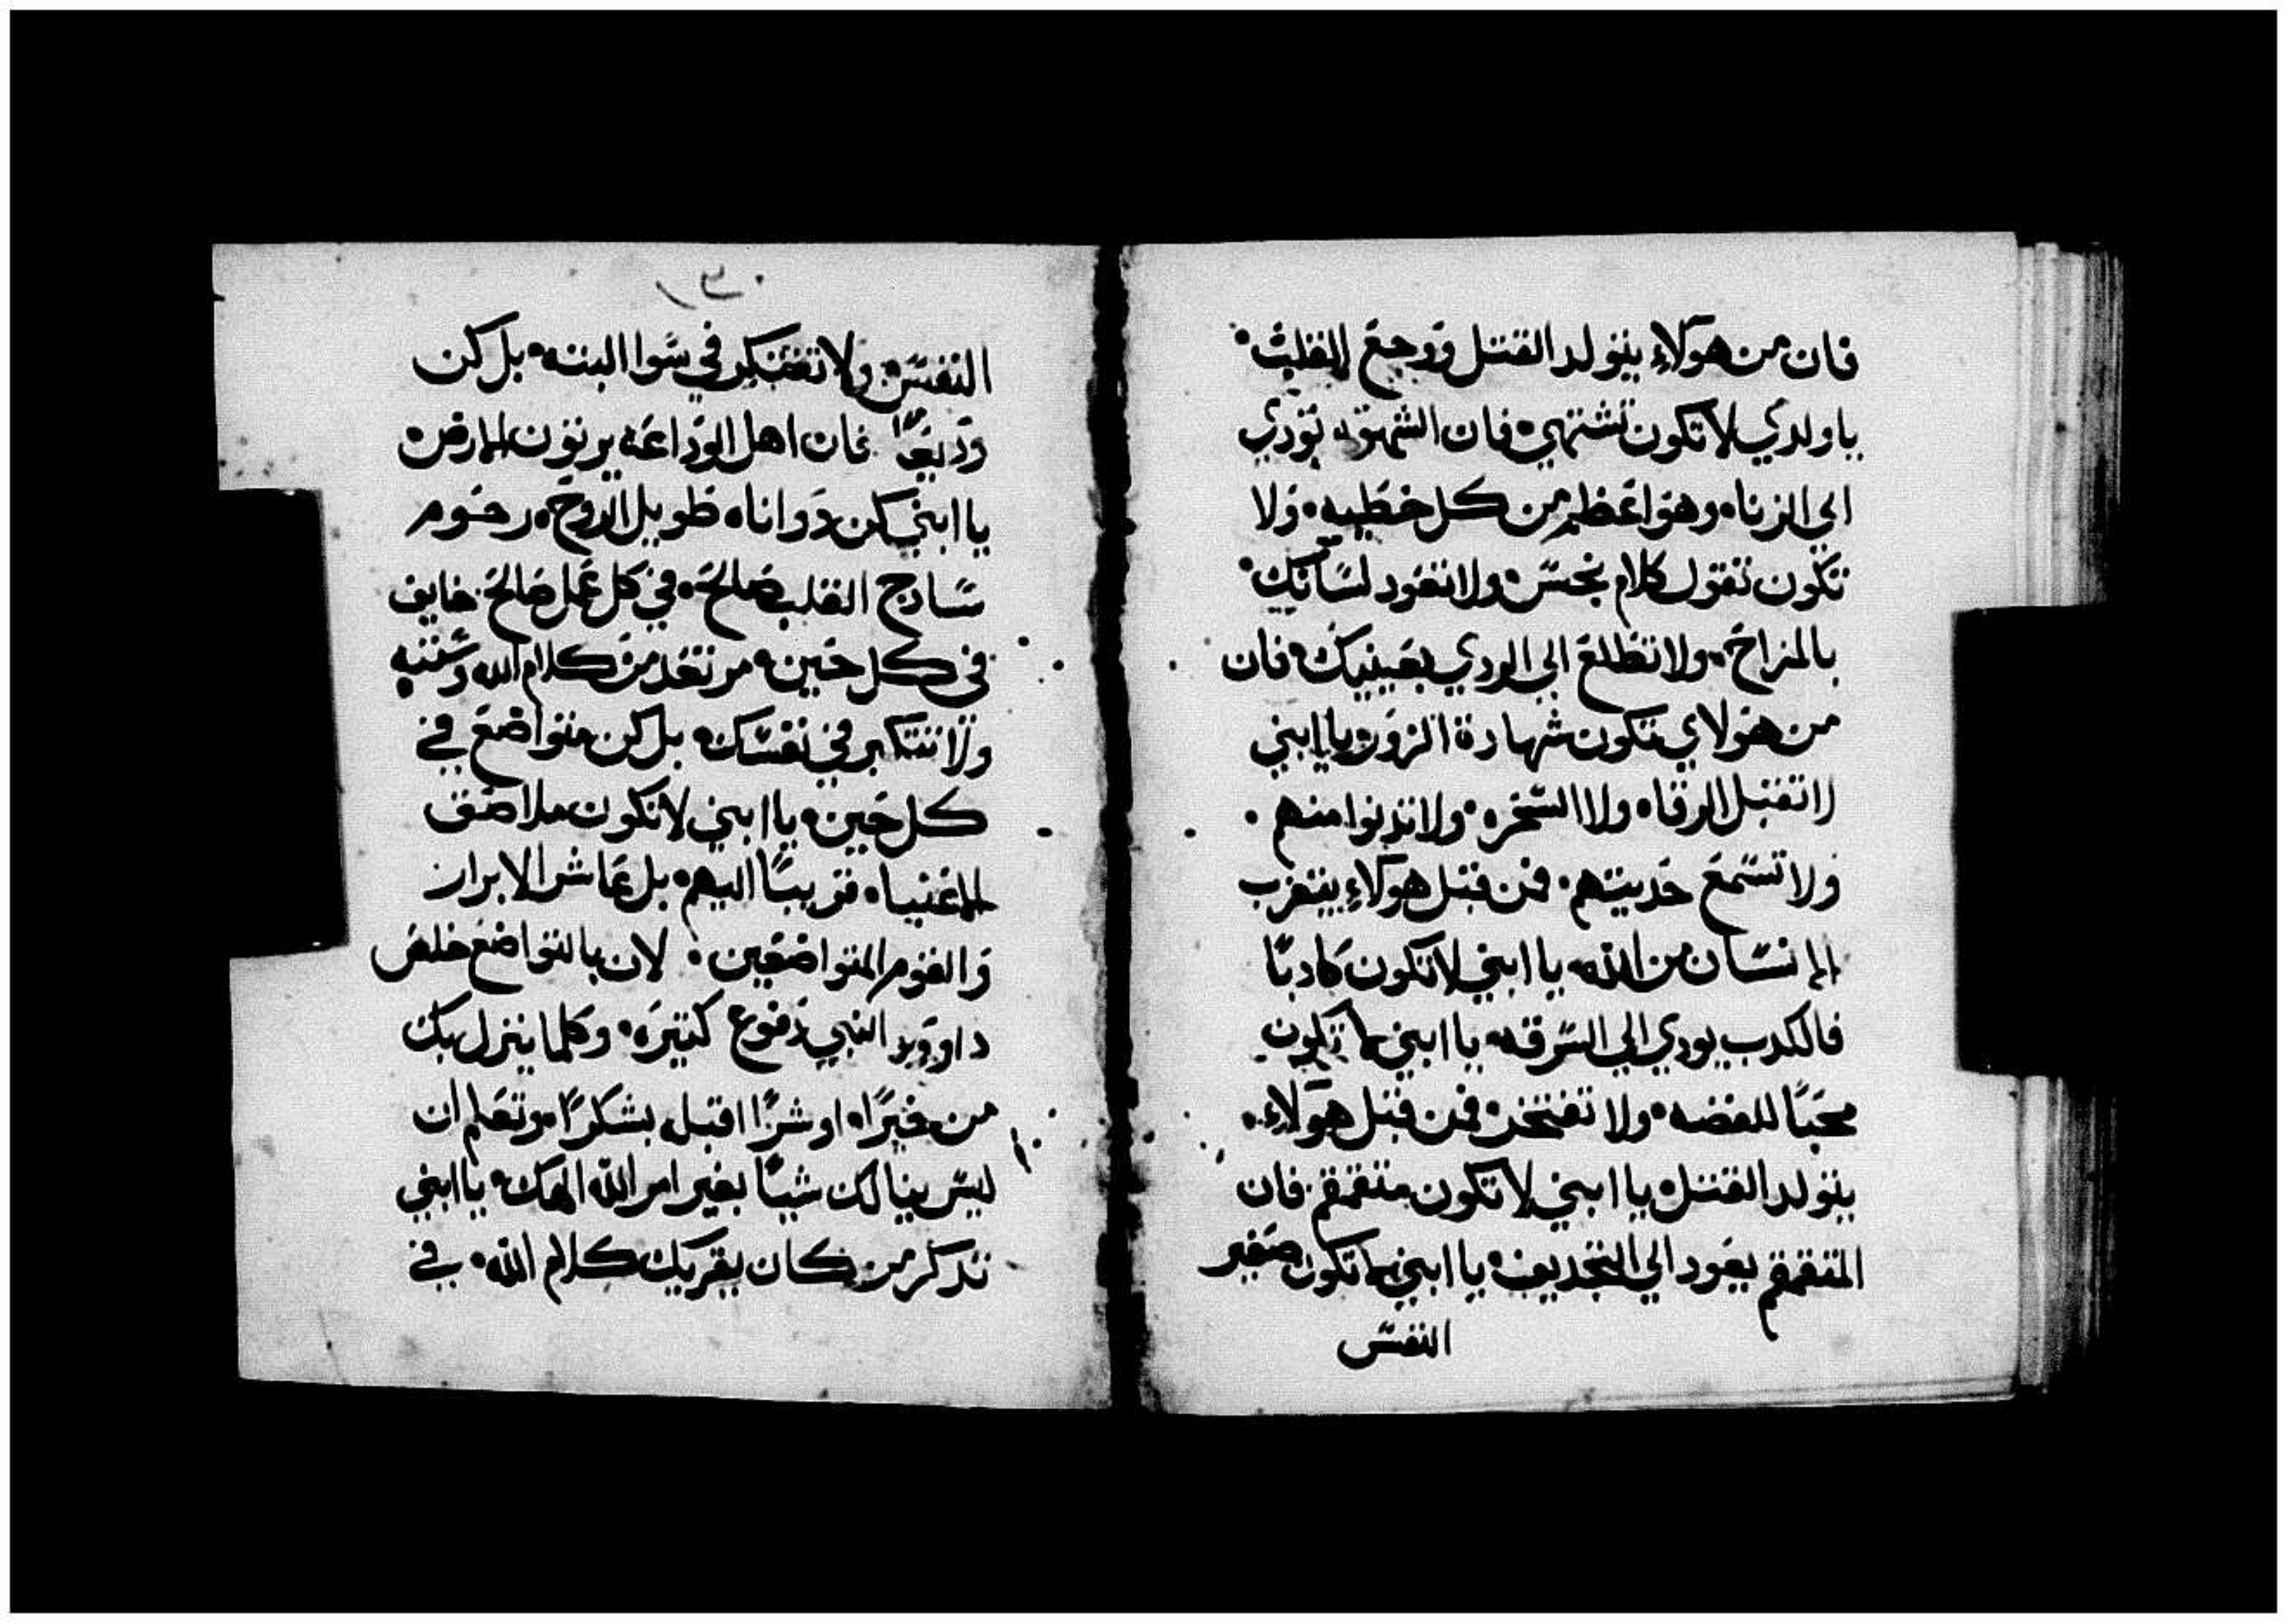 فان من هولاء يتولد القتل ووجع القلب
ياولدي لا تكون تشتهي فان الشهوه تودي
الي الزناه وهو اعظم من كل خطيه ولا
تكون تقول كلام نجس ولا تعود لسانك
بالمزاح ولا تطلع الي الردي بعينيك فان
من هولاي تكون شهادة الزور يا ابني
لا تقبل الرقاه ولا السحره ولا تدنوا منهم
ولا تسمع حديتهم فمن قبل هولاء يتغرب
الانسان من الله يا ابني لا تكون كادبًا
فالكدب يودي الي السرقه يا ابني لا تكون
محبًا للفضه ولا تفتخر فمن قبل هولاء
يتولد القتل يا ابني لا تكون متقمقم فان
المتقمقم يعود الي التجديف يا ابني لا تكون صغير
النفس
٣٠
النفس ولا تفتكر في سوا البته بل كن
وديعًا فان اهل الوداعه يرتون الارض
يا ابني كن دو اناه طويل الروح رحوم
سادج القلب صالح في كل عمل صالح خايف
في كل حين مرتعد من كلام الله وسننه
ولا تتكبر في نفسك بل كن متواضع في
كل حين يا ابني لا تكون ملاصق
للاغنياه قريبًا اليهم بل عاشر الابرار
والقوم المتواضعين لان بالتواضع خلص
داوود النبي دفوع كتيره وكلما ينزل بك
من خيرًا او شرًا اقبله بشكرًا وتعلم ان
ليس ينالك شيًا بغير امر الله الهك يا ابني
تدكر من كان يقريك كلام الله في